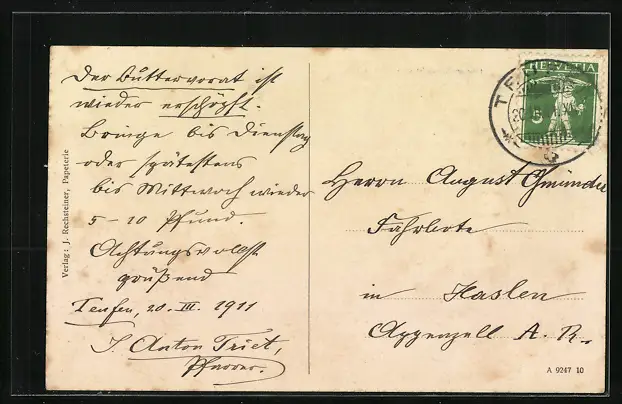 Der Buttervorrat ist
wieder erschöpft.
Bringe bis Dienstag
oder spätestens
bis Mittwoch wieder
5-10 Pfund.
Achtungsvollst
grüßend
Teufen, 20. III. 1911
J. Anton Triet,
Pfarrer.
Verlag: J. Rechsteiner, Papeterie
HELVETIA
5
Herrn August Gmünder
Fahrbote
in Haslen
Appenzell A. R.
A 9247 10